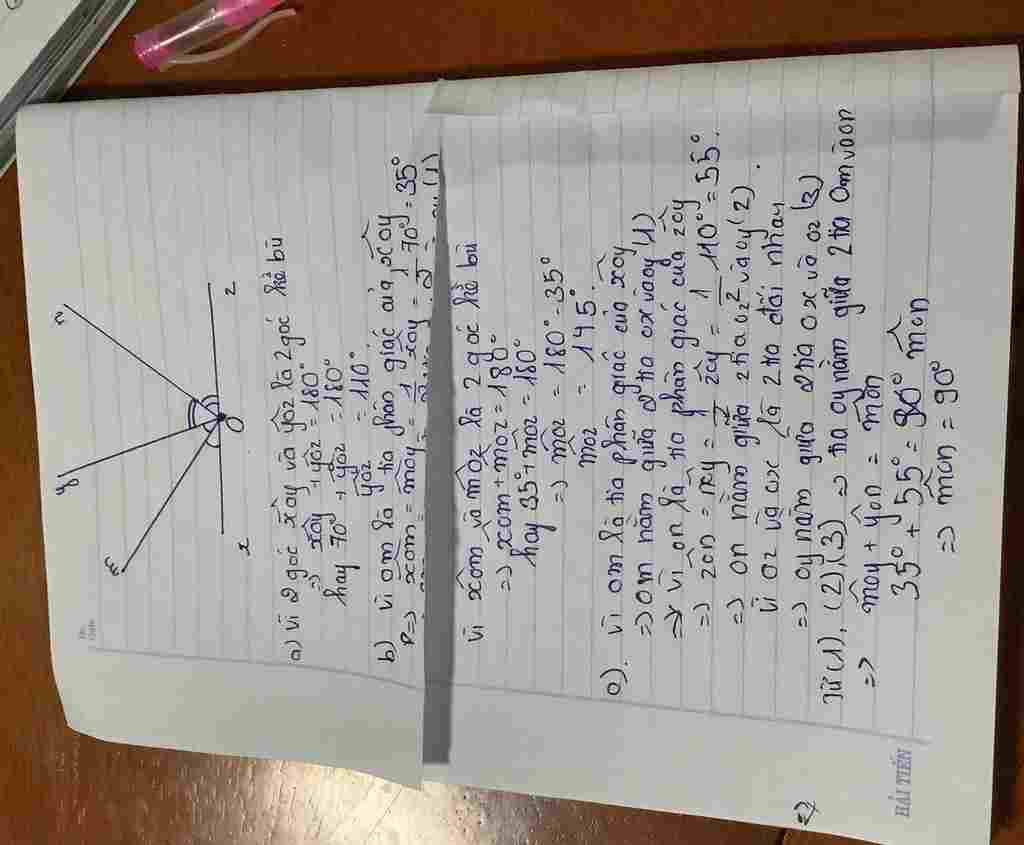 m
y
n
x
O
z
a) Vì 2 góc xôy và yôz là 2 góc kề bù
=> xôy + yôz = 180°
hay 70° + yôz = 180°
yôz = 110°
b) Vì om là tia phân giác của xôy
=> xôm = môy = 1/2 xôy = 1/2 70° = 35°
Vì xôm và môz là 2 góc kề bù
=> xôm + moz = 180°
hay 35° + môz = 180°
=> môz = 180° - 35°
moz = 145°
c). Vì om là tia phân giác của xôy
=> om nằm giữa 2 tia ox và oy (1)
=> Vì on là tia phân giác của zôy
=> zôn = nôy = 1/2 zôy = 1/2 110° = 55°.
=> on nằm giữa 2 tia oz và oy (2)
Vì oz và ox là 2 tia đối nhau.
=> oy nằm giữa 2 tia ox và oz (3)
Từ (1), (2), (3) => tia oy nằm giữa 2 tia om và on
=> môy + yôn = môn
35° + 55° = 90° môn
=> môn = 90°
=>
HẢI TIẾN